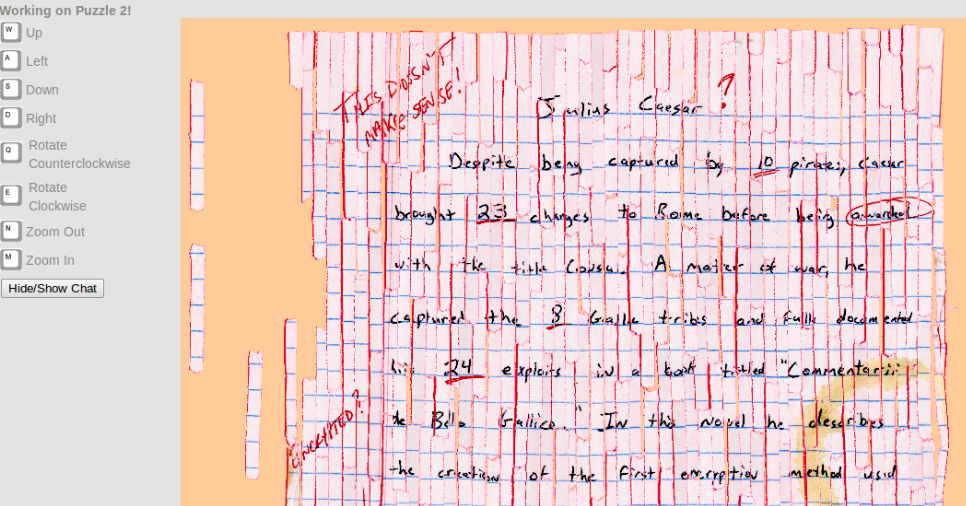 Working on Puzzle 2!
W Up
A Left
S Down
D Right
Q Rotate
Counterclockwise
E Rotate
Clockwise
N Zoom Out
M Zoom In
Hide/Show Chat
THIS DOESN'T
MAKE SENSE!
Julius Caesar ?
Despite being captured by 10 pirates, Caesar
brought 23 changes to Rome before being awarded
with the title Consul. A master of war, he
captured the 8 Gallic tribes and fully documented
his 24 exploits in a book titled "Commentarii
de Bello Gallico." In this novel he describes
ENCRYPTED?
the creation of the first encryption method used